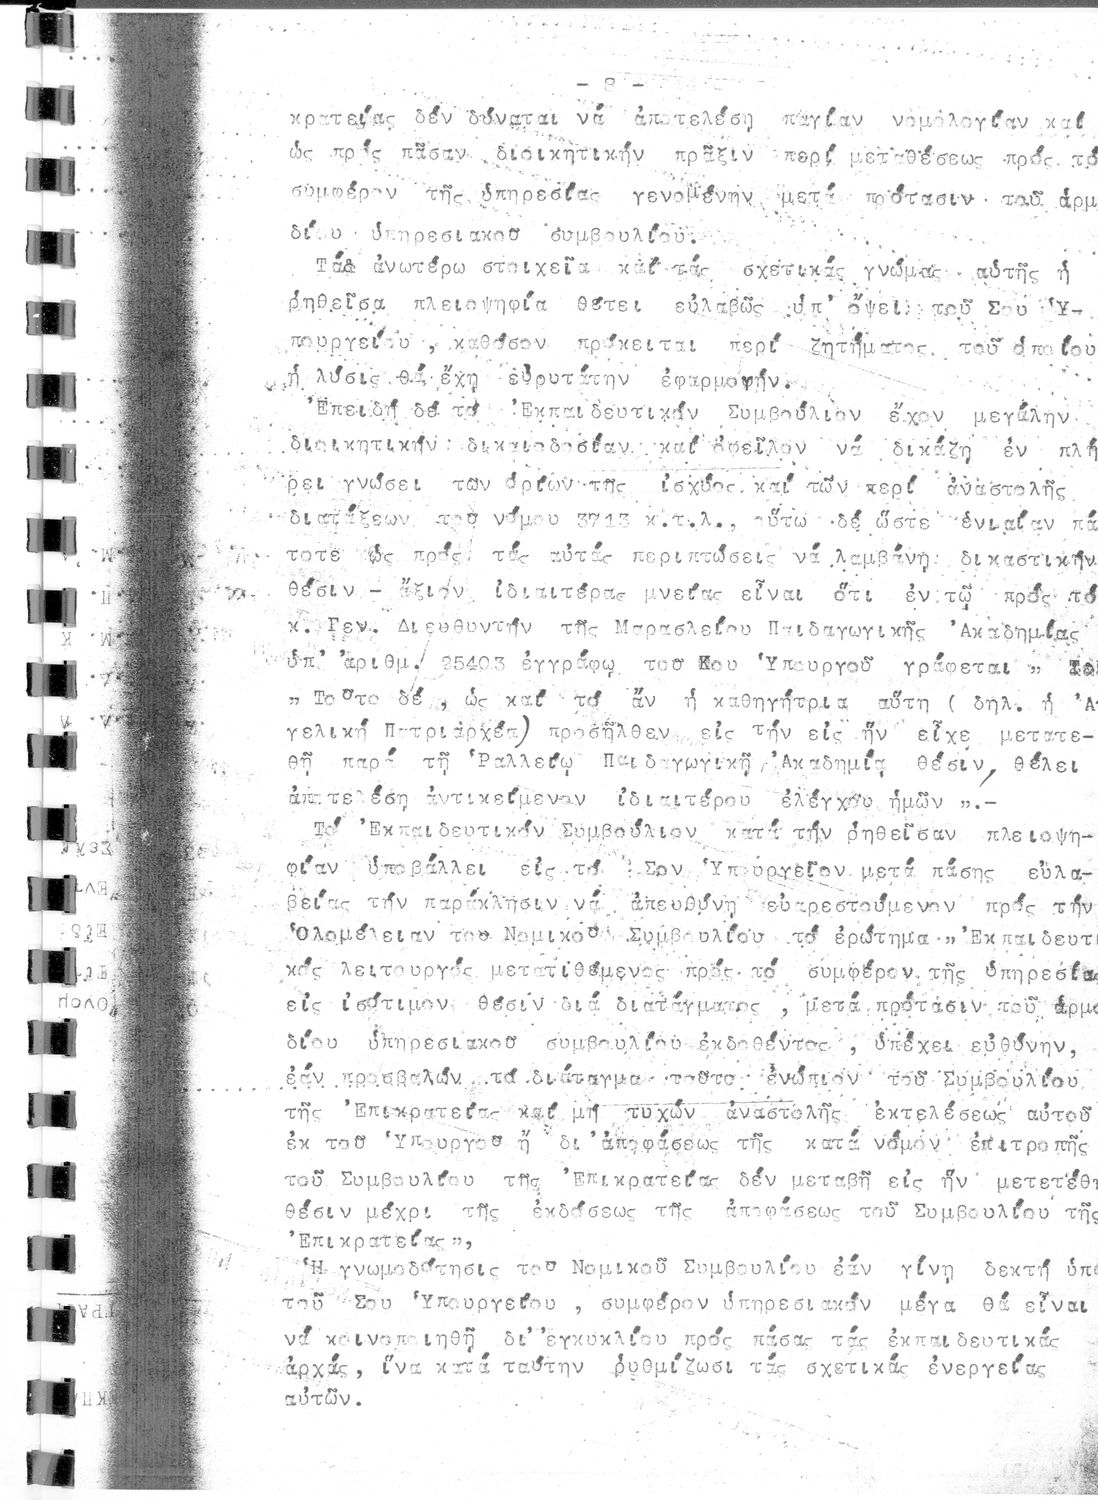 - 8 -
κρατείας δέν δύναται νά ἀποτελέση παγίαν νομολογίαν καί
ὡς πρός πᾶσαν διοικητικήν πρᾶξιν περί μεταθέσεως πρός τό
συμφέρον τῆς ὑπηρεσίας γενομένην μετά πρότασιν τοῦ ἁρμ
δίου ὑπηρεσιακοῦ συμβουλίου.
Τά ἀνωτέρω στοιχεῖα καί τάς σχετικάς γνώμας αὐτῆς ἡ
ρηθεῖσα πλειοψηφία θέτει εὐλαβῶς ὑπ' ὄψει τοῦ Σου Ὑ-
πουργείου , καθόσον πρόκειται περί ζητήματος τοῦ ὁποίου
ἡ λύσις θά ἔχη εὐρυτάτην ἐφαρμογήν.
Ἐπειδή δέ τό Ἐκπαιδευτικόν Συμβούλιον ἔχον μεγάλην
διοικητικήν δικαιοδοσίαν καί ὀφεῖλον νά δικάζη ἐν πλή
ρει γνώσει τῶν ὁρίων τῆς ἰσχύος καί τῶν περί ἀναστολῆς
διατάξεων τοῦ νόμου 3713 κ.τ.λ., οὕτω δέ ὥστε ἑνιαίαν πά
τοτε ὡς πρός τάς αὐτάς περιπτώσεις νά λαμβάνη δικαστικήν
θέσιν – ἄξιον ἰδιαιτέρας μνείας εἶναι ὅτι ἐν τῷ πρός τό
κ. Γεν. Διευθυντήν τῆς Μαρασλείου Παιδαγωγικῆς Ἀκαδημίας
ὑπ' ἀριθμ. 25403 ἐγγράφῳ τοῦ Κου Ὑπουργοῦ γράφεται „
„ Τοῦτο δέ , ὡς καί τό ἄν ἡ καθηγήτρια αὕτη ( δηλ. ἡ Ἀ
γελική Πατριάρχέα) προσῆλθεν εἰς τήν εἰς ἥν εἶχε μετατε-
θῆ παρά τῆ Ῥαλλείῳ Παιδαγωγικῆ Ἀκαδημίᾳ θέσιν, θέλει
ἀποτελέση ἀντικείμενον ἰδιαιτέρου ἐλέγχου ἡμῶν „.-
Τό Ἐκπαιδευτικόν Συμβούλιον κατά τήν ρηθεῖσαν πλειοψη-
φίαν ὑποβάλλει εἰς τό Σον Ὑπουργεῖον μετά πάσης εὐλα-
βείας τήν παράκλησιν νά ἀπευθύνη εὐαρεστούμενον πρός τήν
Ὁλομέλειαν τοῦ Νομικοῦ Συμβουλίου τό ἐρώτημα „ Ἐκπαιδευτι
κός λειτουργός μετατιθέμενος πρός τό συμφέρον τῆς ὑπηρεσίας
εἰς ἰσότιμον θέσιν διά διατάγματος , μετά πρότασιν τοῦ ἁρμο
δίου ὑπηρεσιακοῦ συμβουλίου ἐκδοθέντος , ὑπέχει εὐθύνην,
ἐάν προσβαλών τό διάταγμα τοῦτο ἐνώπιον τοῦ Συμβουλίου
τῆς Ἐπικρατείας καί μή τυχών ἀναστολῆς ἐκτελέσεως αὐτοῦ
ἐκ τοῦ Ὑπουργοῦ ἤ δι' ἀποφάσεως τῆς κατά νόμον ἐπιτροπῆς
τοῦ Συμβουλίου τῆς Ἐπικρατείας δέν μεταβῆ εἰς ἥν μετετέθη
θέσιν μέχρι τῆς ἐκδόσεως τῆς ἀποφάσεως τοῦ Συμβουλίου τῆς
Ἐπικρατείας „,
Ἡ γνωμοδότησις τοῦ Νομικοῦ Συμβουλίου ἐάν γίνη δεκτή ὑπό
τοῦ Σου Ὑπουργείου , συμφέρον ὑπηρεσιακόν μέγα θά εἶναι
νά κοινοποιηθῆ δι' ἐγκυκλίου πρός πάσας τάς ἐκπαιδευτικάς
ἀρχάς, ἵνα κατά ταύτην ρυθμίζωσι τάς σχετικάς ἐνεργείας
αὐτῶν.